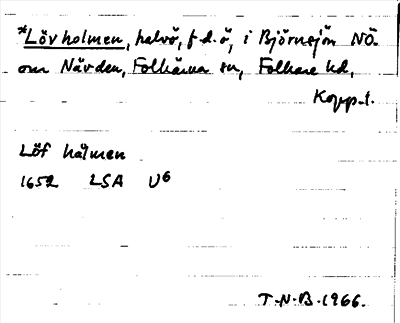 *Lövholmen, halvö, f.d. ö, i Björnsjön NÖ.
om Nävden, Folkärna sn, Folkare hd,
Kopp. l.
Löf hålmen
1652 LSA U6
T.N.B. 1966.